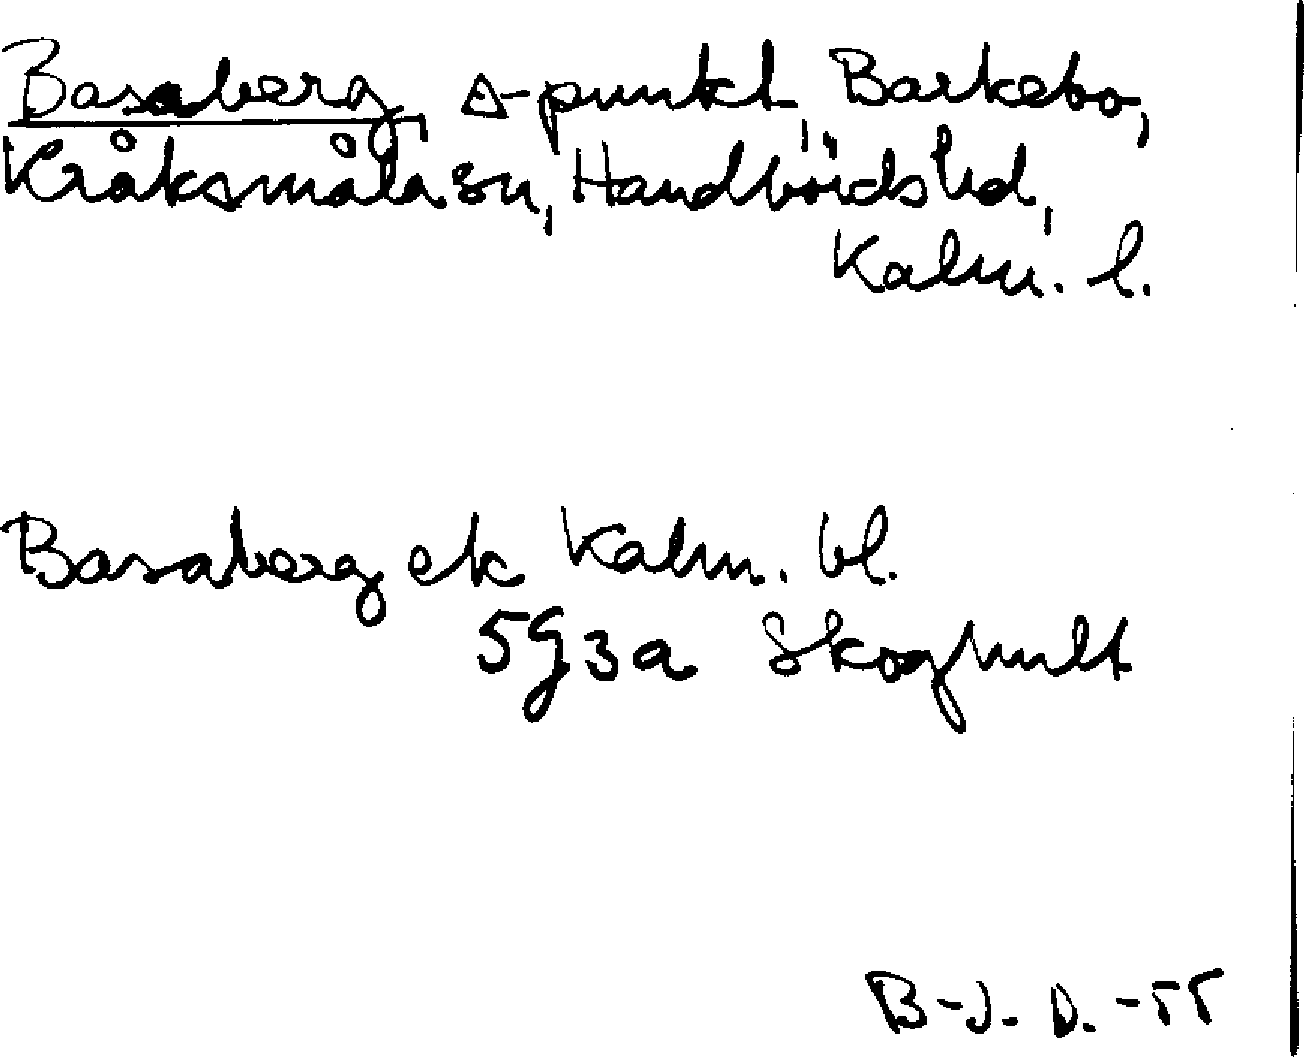 Basaberg, △-punkt, Barkebo,
Kråksmåla sn, Handbörds hd,
Kalm. l.
Basaberg ek Kalm. bl.
5g3a Skoghult
B-J. D. -55